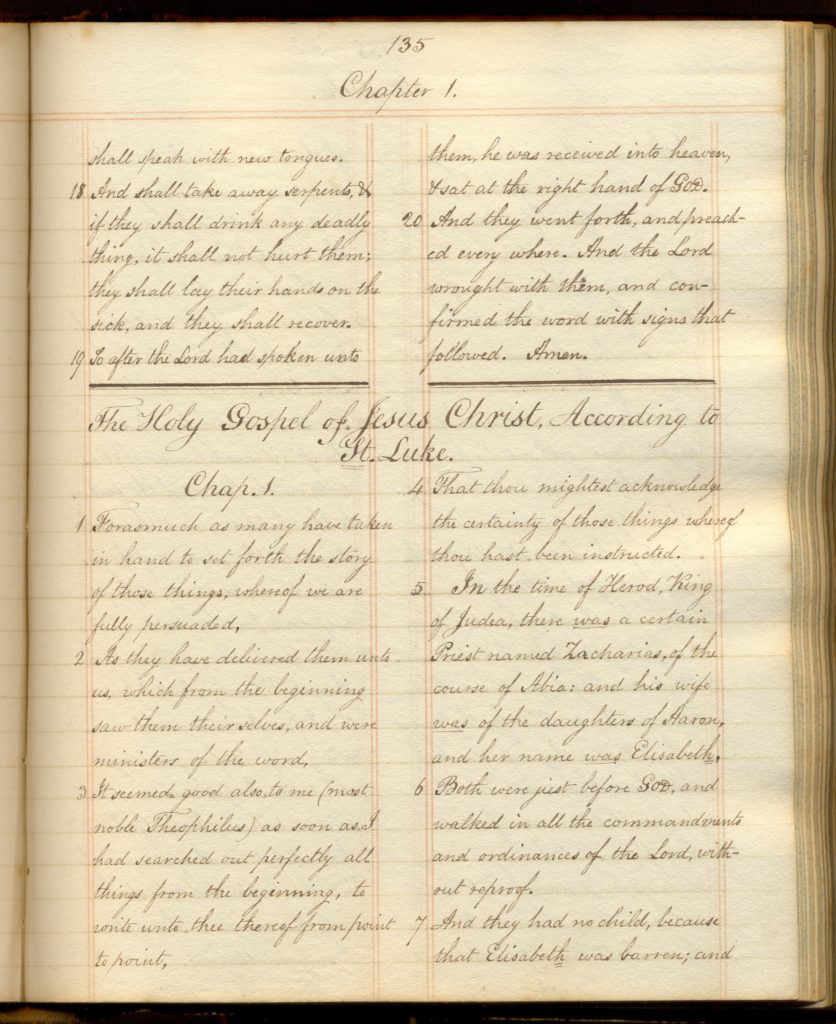 135
Chapter 1.
shall speak with new tongues.
18 And shall take away serpents, &
if they shall drink any deadly
thing, it shall not hurt them;
they shall lay their hands on the
sick, and they shall recover.
19 So after the Lord had spoken unto
them, he was received into heaven,
& sat at the right hand of GOD.
20 And they went forth, and preach-
ed every where. And the Lord
wrought with them, and con-
firmed the word with signs that
followed. Amen.
The Holy Gospel of Jesus Christ, According to
St. Luke.
Chap. 1.
1 Forasmuch as many have taken
in hand to set forth the story
of those things, whereof we are
fully persuaded,
2 As they have delivered them unto
us, which from the beginning
saw them their selves, and were
ministers of the word,
3 It seemed good also to me (most
noble Theophilus) as soon as I
had searched out perfectly all
things from the beginning, to
write unto thee thereof from point
to point,
4 That thou mightest acknowledge
the certainty of those things whereof
thou hast been instructed.
5 In the time of Herod, King
of Judea, there was a certain
Priest named Zacharias, of the
course of Abia: and his wife
was of the daughters of Aaron,
and her name was Elisabeth,
6 Both were just before GOD, and
walked in all the commandments
and ordinances of the Lord, with-
out reproof.
7 And they had no child, because
that Elisabeth was barren; and